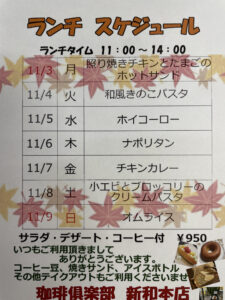 ランチ スケジュール
ランチタイム 11:00～14:00
11/3 月 照り焼きチキンとたまごの
ホットサンド
11/4 火 和風きのこパスタ
11/5 水 ホイコーロー
11/6 木 ナポリタン
11/7 金 チキンカレー
11/8 土 小エビとブロッコリーの
クリームパスタ
11/9 日 オムライス
サラダ・デザート・コーヒー付 ¥950
いつもご利用頂きまして
ありがとうございます。
コーヒー豆、焼きサンド、アイスボトル
その他テイクアウトもご利用くださいませ
珈琲倶楽部 新和本店